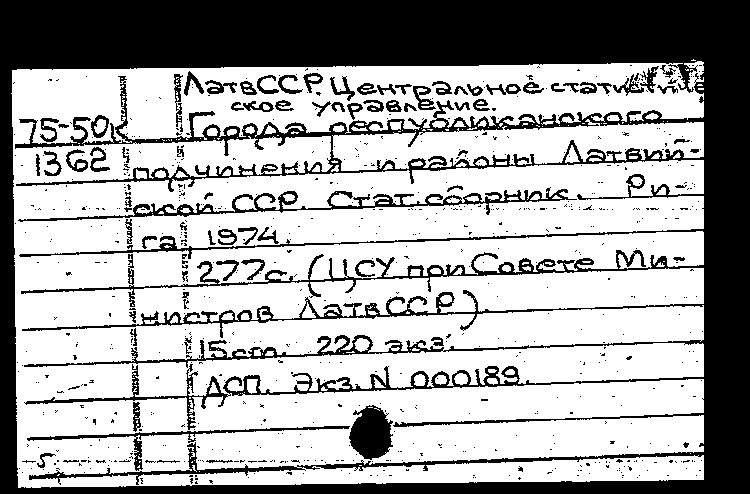 ЛатвССР. Центральное статистиче
ское управление.
75-50к Города республиканского
1362 подчинения и районы Латвий-
ской ССР. Стат. сборник. Ри-
га, 1974.
277с. (ЦСУ при Совете Ми-
нистров ЛатвССР).
15см. 220 экз.
ДСП. Экз. N 000189.
5